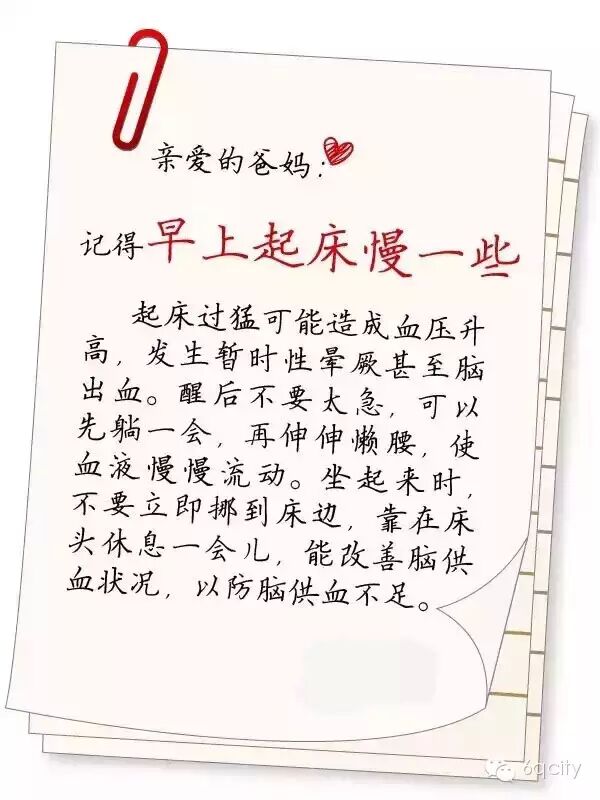 亲爱的爸妈：
记得早上起床慢一些
起床过猛可能造成血压升
高，发生暂时性晕厥甚至脑
出血。醒后不要太急，可以
先躺一会，再伸伸懒腰，使
血液慢慢流动。坐起来时，
不要立即挪到床边，靠在床
头休息一会儿，能改善脑供
血状况，以防脑供血不足。
6qcity